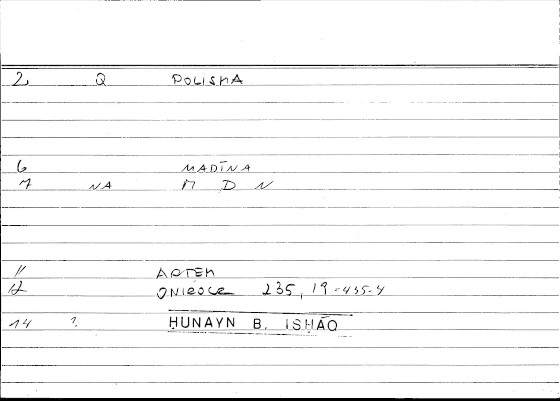 2 Q POLISMA
6 MADĪNA
7 NA M D N
11 ARTEM
12 ONIROCR 235, 19-435-4
14 ? ḤUNAYN B. ISḤĀQ